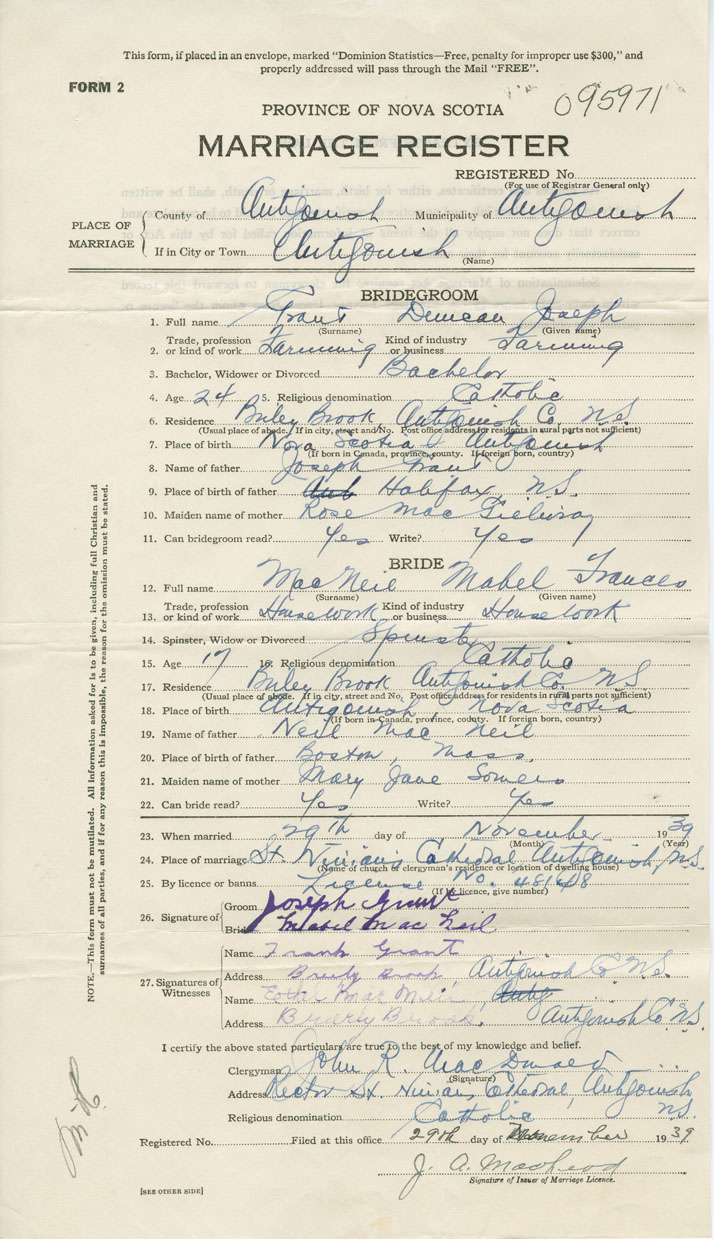 This form, if placed in an envelope, marked "Dominion Statistics—Free, penalty for improper use $300," and
properly addressed will pass through the Mail "FREE".
FORM 2
095971
PROVINCE OF NOVA SCOTIA
MARRIAGE REGISTER
REGISTERED No.
(For use of Registrar General only)
PLACE OF MARRIAGE
County of Antigonish Municipality of Antigonish
If in City or Town Antigonish
(Name)
BRIDEGROOM
1. Full name Grant Duncan Joseph
(Surname) (Given name)
2. Trade, profession or kind of work Farming Kind of industry or business Farming
3. Bachelor, Widower or Divorced Bachelor
4. Age 24 5. Religious denomination Catholic
6. Residence Briley Brook, Antigonish Co. N.S.
(Usual place of abode. If in city, street and No. Post office address for residents in rural parts not sufficient)
7. Place of birth Nova Scotia Antigonish
(If born in Canada, province, county. If foreign born, country)
8. Name of father Joseph Grant
9. Place of birth of father Halifax, N.S.
10. Maiden name of mother Rose Mac Gielivray
11. Can bridegroom read? Yes Write? Yes
BRIDE
12. Full name MacNeil Mabel Frances
(Surname) (Given name)
13. Trade, profession or kind of work Housework Kind of industry or business Housework
14. Spinster, Widow or Divorced Spinster
15. Age 17 16. Religious denomination Catholic
17. Residence Briley Brook Antigonish Co. N.S.
(Usual place of abode. If in city, street and No. Post office address for residents in rural parts not sufficient)
18. Place of birth Antigonish Nova Scotia
(If born in Canada, province, county. If foreign born, country)
19. Name of father Neil Mac Neil
20. Place of birth of father Boston, Mass.
21. Maiden name of mother Mary Jane Somers
22. Can bride read? Yes Write? Yes
23. When married 29th day of November 1939
(Month) (Year)
24. Place of marriage St. Ninian's Cathedral Antigonish, N.S.
(Name of church or clergyman's residence or location of dwelling house)
25. By licence or banns License No.
(If by licence, give number)
26. Signature of
Groom Joseph Grant
Bride Mabel Mac Neil
27. Signatures of Witnesses
Name Frank Grant
Address Brook, Antigonish Co N.S.
Name
Address Brook, Antigonish Co N.S.
I certify the above stated particulars are true to the best of my knowledge and belief.
Clergyman John R. MacDonald
(Signature)
Address Rector St. Ninian's Cathedral, Antigonish
Religious denomination Catholic N.S.
Registered No. Filed at this office 29th day of November 1939
J. A. MacLeod
Signature of Issuer of Marriage Licence.
[SEE OTHER SIDE]
NOTE.—This form must not be mutilated. All information asked for is to be given, including full Christian and
surnames of all parties, and if for any reason this is impossible, the reason for the omission must be stated.